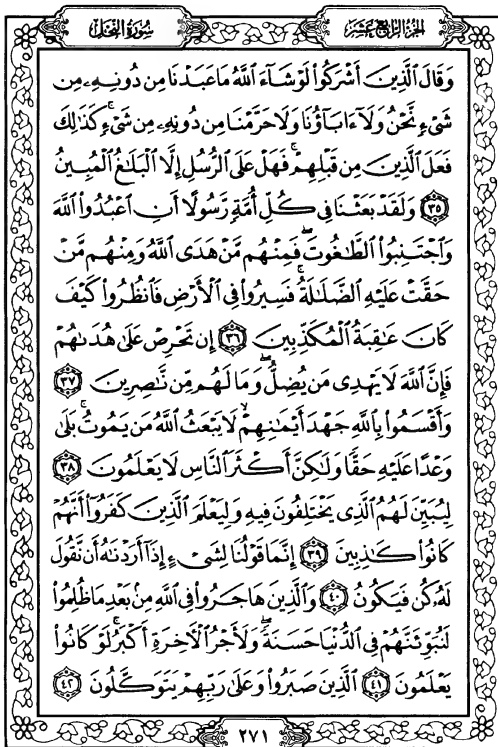 سُورَةُ النَّحْلِ
الجُزْءُ الرَّابِعَ عَشَرَ
وَقَالَ ٱلَّذِينَ أَشْرَكُوا۟ لَوْ شَآءَ ٱللَّهُ مَا عَبَدْنَا مِن دُونِهِۦ مِن
شَىْءٍ نَّحْنُ وَلَآ ءَابَآؤُنَا وَلَا حَرَّمْنَا مِن دُونِهِۦ مِن شَىْءٍ ۚ كَذَٰلِكَ
فَعَلَ ٱلَّذِينَ مِن قَبْلِهِمْ ۚ فَهَلْ عَلَى ٱلرُّسُلِ إِلَّا ٱلْبَلَٰغُ ٱلْمُبِينُ
٣٥ وَلَقَدْ بَعَثْنَا فِى كُلِّ أُمَّةٍ رَّسُولًا أَنِ ٱعْبُدُوا۟ ٱللَّهَ
وَٱجْتَنِبُوا۟ ٱلطَّٰغُوتَ ۖ فَمِنْهُم مَّنْ هَدَى ٱللَّهُ وَمِنْهُم مَّنْ
حَقَّتْ عَلَيْهِ ٱلضَّلَٰلَةُ ۚ فَسِيرُوا۟ فِى ٱلْأَرْضِ فَٱنظُرُوا۟ كَيْفَ
كَانَ عَٰقِبَةُ ٱلْمُكَذِّبِينَ ٣٦ إِن تَحْرِصْ عَلَىٰ هُدَىٰهُمْ
فَإِنَّ ٱللَّهَ لَا يَهْدِى مَن يُضِلُّ ۖ وَمَا لَهُم مِّن نَّٰصِرِينَ ٣٧
وَأَقْسَمُوا۟ بِٱللَّهِ جَهْدَ أَيْمَٰنِهِمْ ۙ لَا يَبْعَثُ ٱللَّهُ مَن يَمُوتُ ۚ بَلَىٰ
وَعْدًا عَلَيْهِ حَقًّا وَلَٰكِنَّ أَكْثَرَ ٱلنَّاسِ لَا يَعْلَمُونَ ٣٨
لِيُبَيِّنَ لَهُمُ ٱلَّذِى يَخْتَلِفُونَ فِيهِ وَلِيَعْلَمَ ٱلَّذِينَ كَفَرُوٓا۟ أَنَّهُمْ
كَانُوا۟ كَٰذِبِينَ ٣٩ إِنَّمَا قَوْلُنَا لِشَىْءٍ إِذَآ أَرَدْنَٰهُ أَن نَّقُولَ
لَهُۥ كُن فَيَكُونُ ٤٠ وَٱلَّذِينَ هَاجَرُوا۟ فِى ٱللَّهِ مِنۢ بَعْدِ مَا ظُلِمُوا۟
لَنُبَوِّئَنَّهُمْ فِى ٱلدُّنْيَا حَسَنَةً ۖ وَلَأَجْرُ ٱلْءَاخِرَةِ أَكْبَرُ ۚ لَوْ كَانُوا۟
يَعْلَمُونَ ٤١ ٱلَّذِينَ صَبَرُوا۟ وَعَلَىٰ رَبِّهِمْ يَتَوَكَّلُونَ ٤٢
٢٧١